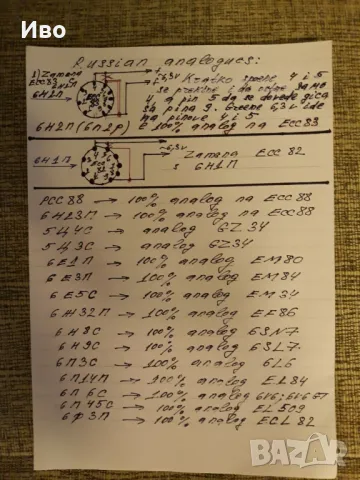 Иво
Russian analogues:
1) Zamana
ECC83
6Н2П
~6,3V
Kratko 4 и 5
se i da само
4, а pin 5 da se
на pina 9. 6,3v ide
na pinove 4 и 5
6Н2П (6п2р) E 100% analog na ECC83
6Н1П
~6,3V
Zamana ECC 82
s 6Н1П
PCC 88 → 100% analog na ECC 88
6Н23П → 100% analog na ECC88
5Ц4С → analog GZ 34
5Ц3С → analog GZ34
6Е1П → 100% analog EM80
6Е3П → 100% analog EM84
6Е5С → 100% analog EM34
6Ж32П → 100% analog EF86
6Н8С → 100% analog 6SN7
6Н9С → 100% analog 6SL7
6П3С → 100% analog 6L6
6П14П → 100% analog EL84
6П6С → 100% analog 6V6; 6V6GT
6П45С → 100% analog EL509
6Ф3П → 100% analog ECL 82
bazar
БГ